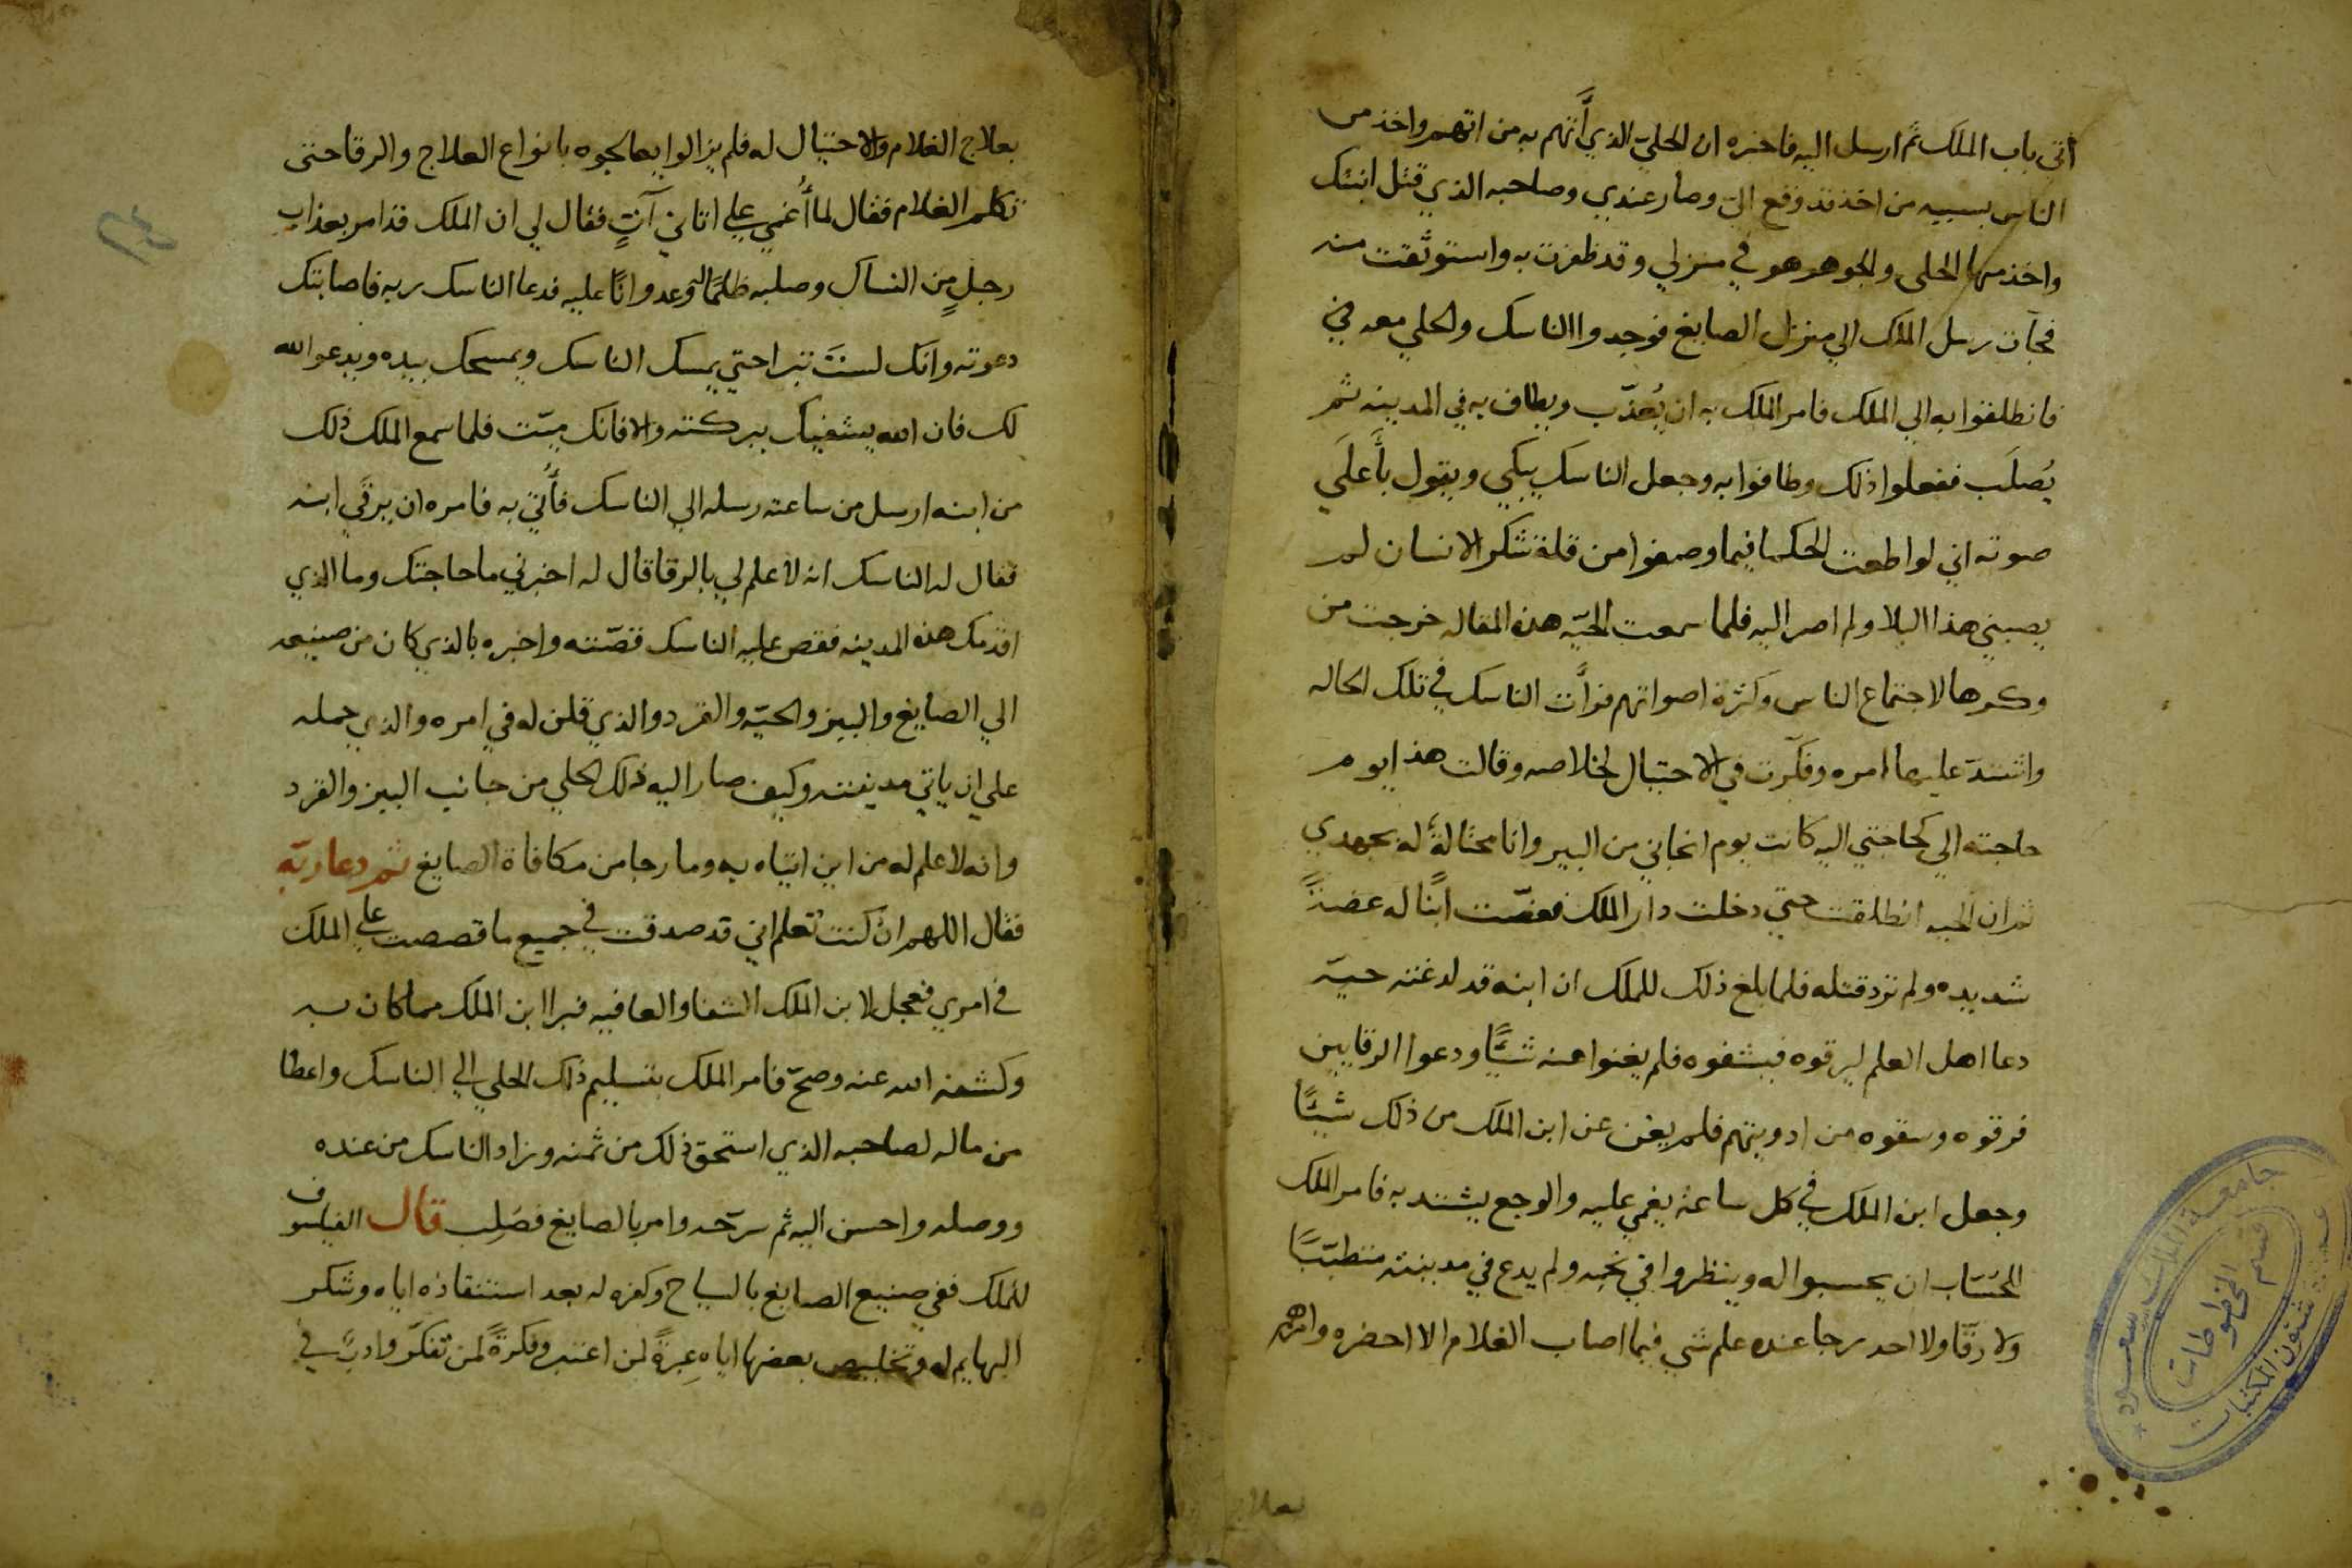 أتي باب الملك ثم ارسل اليه فاخبره ان الحلي الذي أتهم به من اتهم واخذ من
الناس بسببه من اخذ قد وقع الي وصار عندي وصاحبه الذي قتل ابنتك
واخذ منها الحلي والجوهر هو في منزلي وقد ظفرت به واستوثقت منه
فجآت رسل الملك الي منزل الصايغ فوجدوا الناسك والحلي معه في
فانطلقوا به الي الملك فامر الملك به ان يُعذّب ويطاف به في المدينه ثم
يُصلَب ففعلوا ذلك وطافوا به وجعل الناسك يبكي ويقول بأَعلَي
صوته اني لو اطعت الحكما فيما وصفوا من قلة شكر الانسان لم
يصبني هذا البلا ولم اصر اليه فلما سمعت الحيّه هذه المقاله خرجت من
وكرها لاجتماع الناس وكثرة اصواتهم فرأت الناسك في تلك الحاله
واشتدّ عليها امره وفكّرت في الاحتيال لخلاصه وقالت هذا يوم
حاجته الي كحاجتي اليه كانت يوم انجاني من البير وانا محتالةٌ له بجهدي
ثم ان الحيه انطلقت حتي دخلت دار الملك فعضّت ابنًا له عضةً
شديده ولم ترد قتله فلما بلغ ذلك للملك ان ابنه قد لدغته حيّه
دعا اهل العلم ليرقوه فيشفوه فلم يغنوا عنه شيًّا ودعوا الرقايين
فرقوه وسقوه من ادويتهم فلم يغن عن ابن الملك من ذلك شيًّا
وجعل ابن الملك في كل ساعة يغمي عليه والوجع يشتد به فامر الملك
الحسّاب ان يحسبوا له وينظروا في نجمه ولم يدع في مدينته متطببًا
ولا رقّا ولا احد رجا عنده علم شي فيما اصاب الغلام الا احضره وامرهم
بعلاج
بعلاج الغلام والاحتيال له فلم يزالوا يعالجوه بانواع العلاج والرقا حتي
تكلم الغلام فقال لما أُغمي علي اتاني آتٍ فقال لي ان الملك قد امر بعذاب
رجلٍ من النساك وصلبه ظلمًا له وعدوانًا عليه فدعا الناسك ربه فاصابتك
دعوته وانك لستَ تبرا حتي يمسك الناسك ويمسحك بيده ويدعوا الله
لك فان الله يشفيك ببركته والا فانك ميّت فلما سمع الملك ذلك
من ابنه ارسل من ساعته رسله الي الناسك فأُتي به فامره ان يرقي ابنه
فقال له الناسك انه لا علم لي بالرقا قال له اخبرني ما حاجتك وما الذي
اقدمك هذه المدينه فقص عليه الناسك قصّته واخبره بالذي كان من صنيعه
الي الصايغ والببر والحيّه والقرد والذي قلن له في امره والذي حمله
علي ان ياتي مدينته وكيف صار اليه ذلك الحلي من جانب الببر والقرد
وانه لا علم له من اين اتياه به وما رجا من مكافاة الصايغ ثم دعا ربّه
فقال اللهم ان كنت تعلم اني قد صدقت في جميع ما قصصت علي الملك
في امري فعجل لابن الملك الشفا والعافيه فبرا ابن الملك مما كان به
وكشفه الله عنه وصحّ فامر الملك بتسليم ذلك الحلي الي الناسك واعطا
من ماله لصاحبه الذي استحق ذلك من ثمنه وزاد الناسك من عنده
ووصله واحسن اليه ثم سرّحه وامر بالصايغ فصُلِب قال الفيلسوف
للملك ففي صنيع الصايغ بالسياح وكفره له بعد استنقاذه اياه وشكر
البهايم له وتخليص بعضها اياه عبرةً لمن اعتبر وفكرةً لمن تفكّر وادبٌ في
جامعة الملك سعود
قسم المخطوطات
عمادة شئون المكتبات